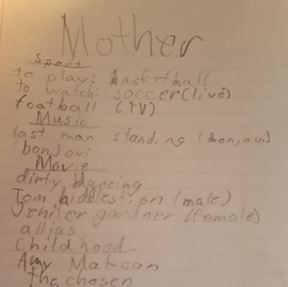 Mother
sport
to play: basketball
to watch: soccer(live)
football (TV)
Music
last man standing (bonjovi)
bonjovi
Movie
dirty dancing
Tom hiddlestion (male)
Jenifer gardner (female)
allias
Childhood
Amy
the chosen